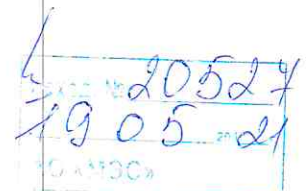 № 20527
19 05 21
АО «МЭС»